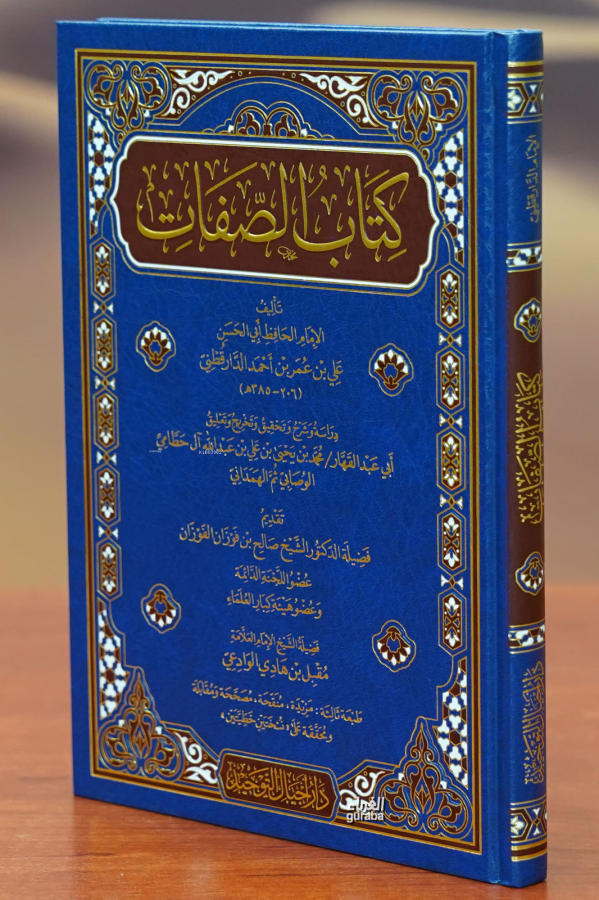 كِتَابُ الصِّفَاتِ
تَأليفُ
الإِمَامِ الحَافِظِ أَبِي الحَسَنِ
عَلِي بْنِ عُمَرَ بْنِ أَحْمَدَ الدَّارَقُطْنِيّ
(٢٠٦-٣٨٥هـ)
دِرَاسَة وَشَرْح وَتَحْقِيق وَتَخْرِيج وَتَعْلِيق
أَبِي عَبْدِ القَهَّار/ مُحَمَّد بْن يَحْيَى بْن عَلِي بْن عَبْدِ اللهِ آل حَطَّامِي
الوُصَابِيّ ثُمَّ الهَمْدَانِيّ
تَقْدِيمُ
فَضِيلَة الدكْتُور الشَّيْخ صَالِح بْن فَوْزَان الفَوْزَان
عُضْو اللَّجْنَةِ الدَّائِمَة
وَعُضْو هَيْئَة كِبَار العُلَمَاءِ
فَضِيلَةُ الشَّيْخِ الإِمَامِ العَلَّامَةِ
مُقْبِل بْن هَادِي الوَادِعِيّ
طَبْعَة ثَالِثَة: مَزِيدَة، مُنَقَّحَة، مُصَحَّحَة وَمُقَابَلَة
وَمُحَقَّقَة عَلَى «نُسْخَتَيْنِ خَطِّيَّتَيْنِ»
دَار أَجْيَال التَّوْحِيد
الغرباء
guraba
الإمام الدارقطني
كتاب الصفات
دار أجيال التوحيد